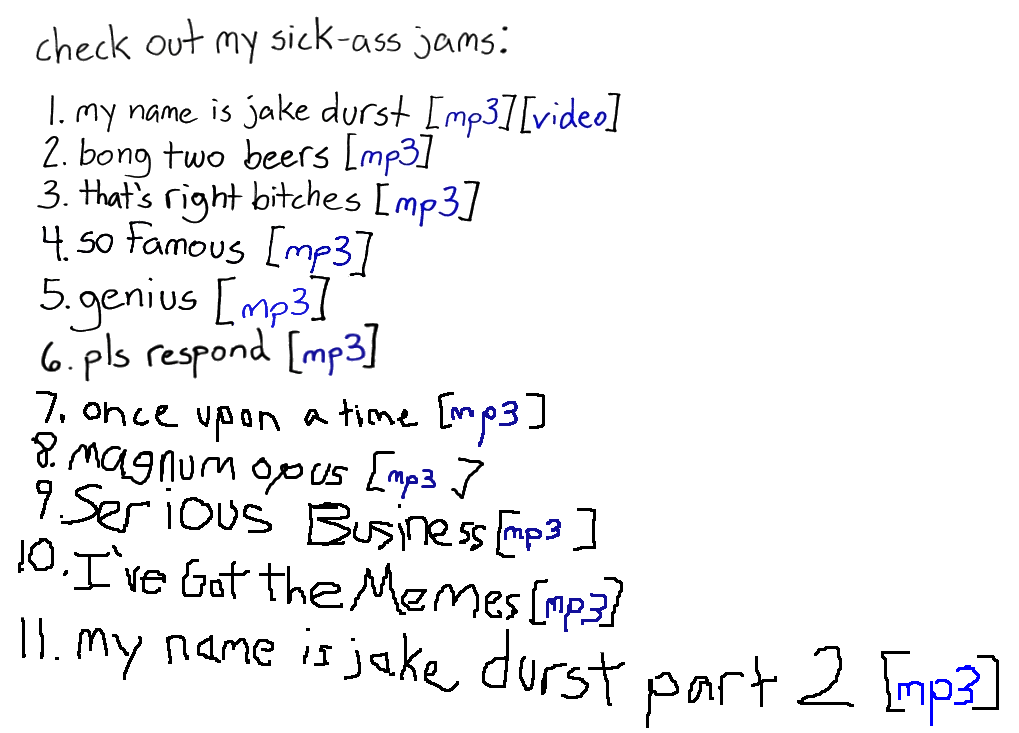 check out my sick-ass jams:
1. my name is jake durst [mp3][video]
2. bong two beers [mp3]
3. that's right bitches [mp3]
4. so famous [mp3]
5. genius [mp3]
6. pls respond [mp3]
7. once upon a time [mp3]
8. magnum opus [mp3]
9. Serious Business [mp3]
10. I've Got the Memes [mp3]
11. my name is jake durst part 2 [mp3]